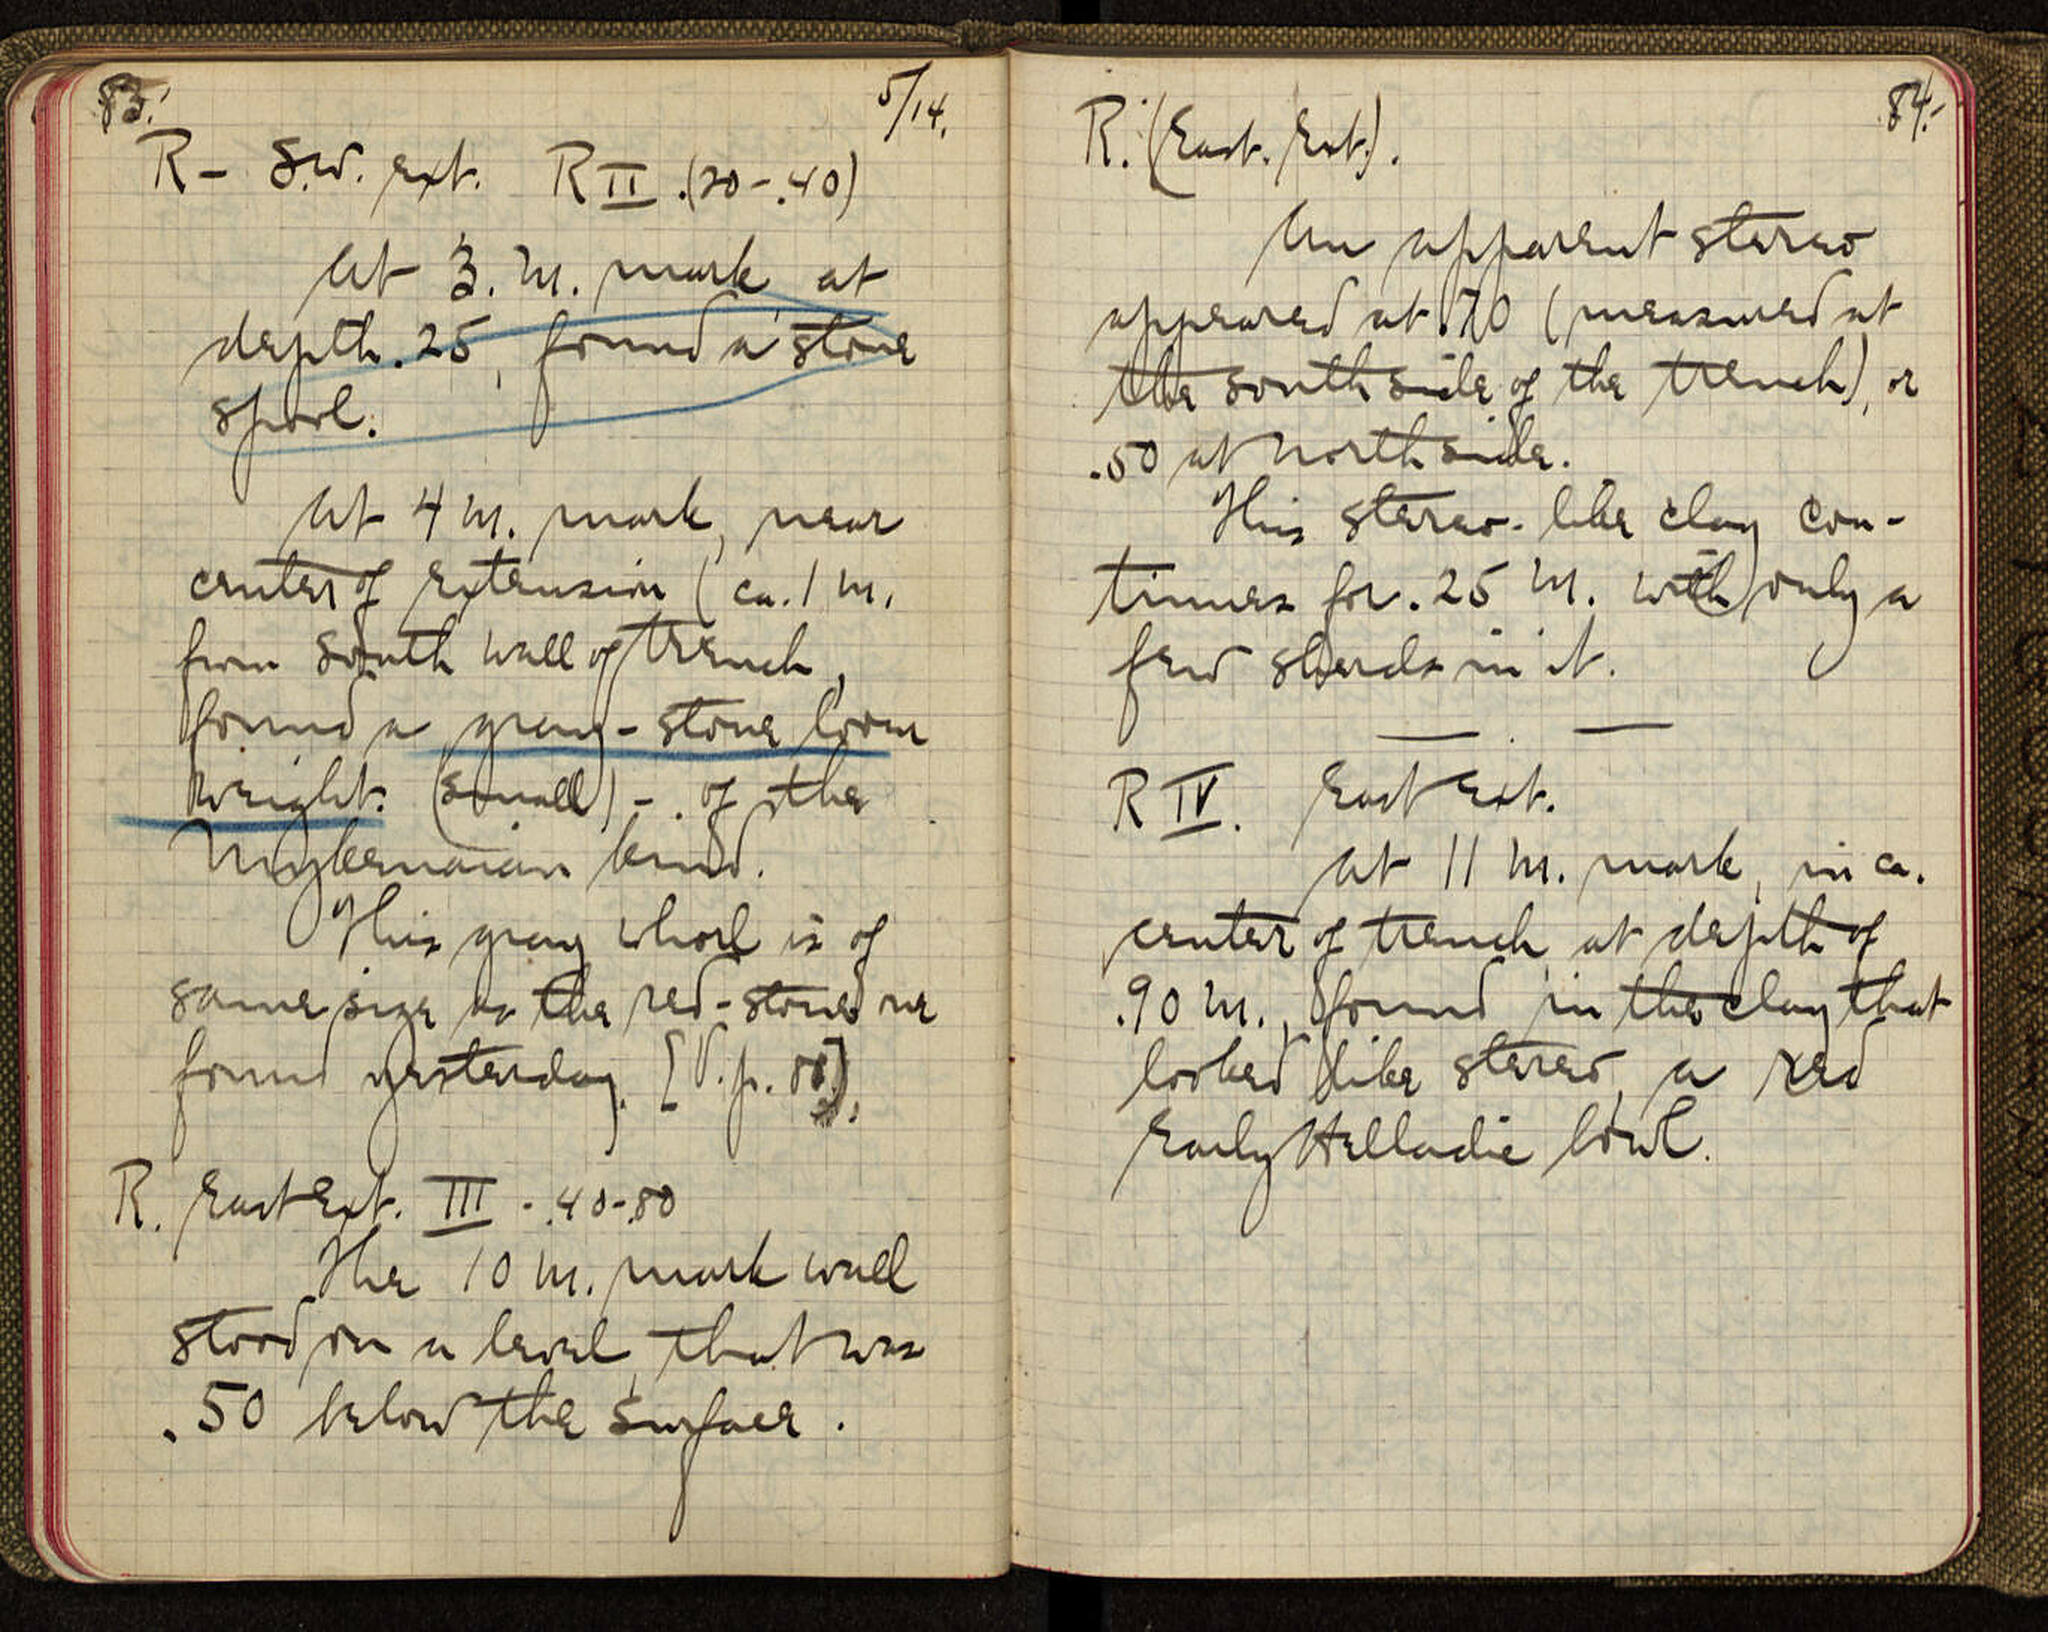 83.
5/14.
R - S.W. ext. R II .(20-.40)
At 3. m. mark, at
depth .25, found a stone
spool.
At 4 m. mark, near
center of extension (ca. 1 m.
from south wall of trench,
found a gray-stone loom
weight. (small) - of the
Mykenaian kind.
This gray whorl is of
same size as the red-stone one
found yesterday. [V. p.
R. East Ext. III - .40-.80
The 10 m. mark wall
stood on a level, that was
.50 below the surface.
84.
R. (East. Ext.).
An apparent stereo
appeared at .70 (measured at
the south side of the trench), or
.50 at north side.
This stereo-like clay con-
tinues for .25 m. with only a
few sherds in it.
R IV. East Ext.
At 11 m. mark, in ca.
center of trench, at depth of
.90 m., found in the clay that
looked like stereo, a red
Early Helladic bowl.